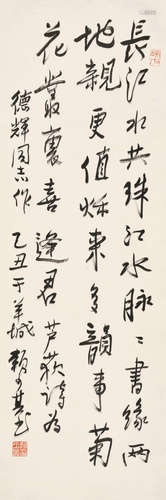 長江水共珠江水脉〻書緣兩
地親更值秋來多韻事菊
花叢裏喜逢君芦荻詩为
德輝同志作
乙丑于羊城賴少其书